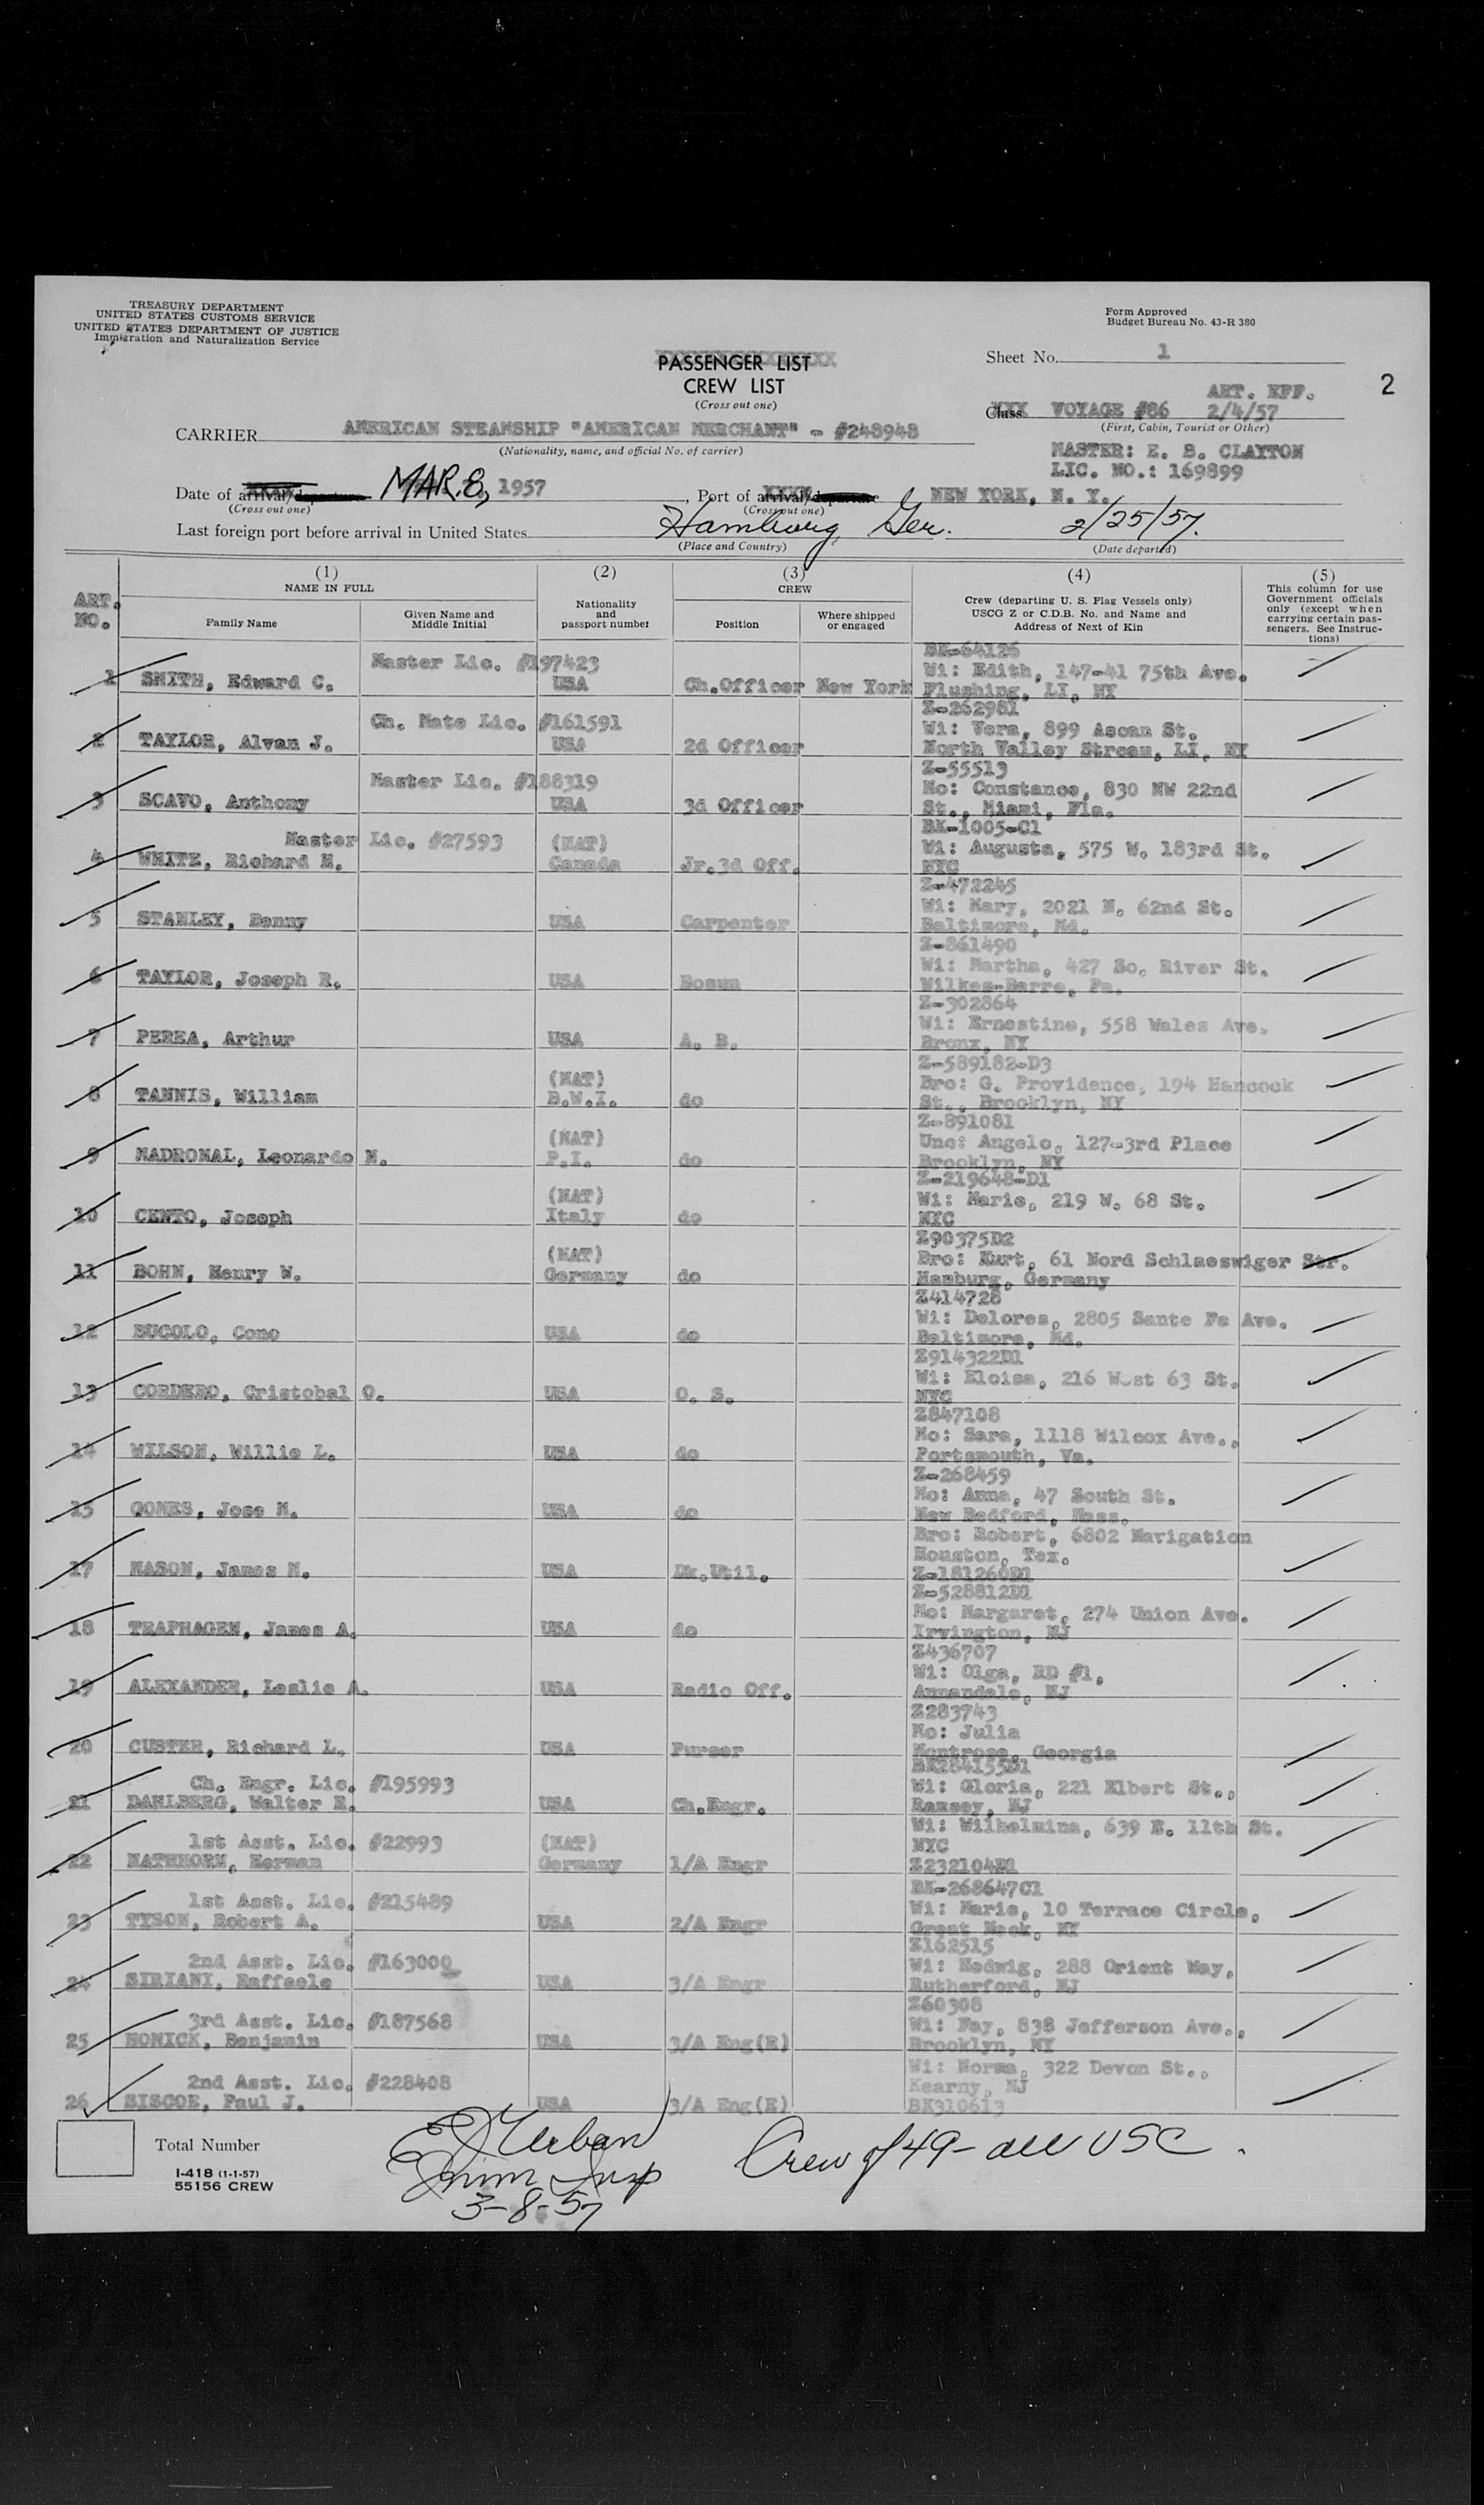 TREASURY DEPARTMENT
UNITED STATES CUSTOMS SERVICE
UNITED STATES DEPARTMENT OF JUSTICE
Immigration and Naturalization Service
Form Approved
Budget Bureau No. 43-R 380
PASSENGER LIST
CREW LIST
(Cross out one)
Sheet No. 1
2
ART. EFF.
Class VOYAGE #86 2/4/57
(First, Cabin, Tourist or Other)
CARRIER AMERICAN STEAMSHIP "AMERICAN MERCHANT" - #248948
(Nationality, name, and official No. of carrier)
MASTER: E. B. CLAYTON
LIC. NO.: 169899
Date of arrival/departure MAR. 8, 1957, Port of arrival/departure NEW YORK, N. Y.
(Cross out one) (Cross out one)
Last foreign port before arrival in United States Hamburg Ger. 2/25/57.
(Place and Country) (Date departed)
ART. NO.
(1) NAME IN FULL
Family Name
Given Name and Middle Initial
(2) Nationality and passport number
(3) CREW
Position
Where shipped or engaged
(4) Crew (departing U. S. Flag Vessels only) USCG Z or C.D.B. No. and Name and Address of Next of Kin
(5) This column for use Government officials only (except when carrying certain passengers. See Instructions)
Master Lic. #197423 BK-64126
1 SMITH, Edward C. USA Ch.Officer New York Wi: Edith, 147-41 75th Ave.
Flushing, LI, NY
Ch. Mate Lic. #161591 Z-262981
2 TAYLOR, Alvan J. USA 2d Officer Wi: Vera, 899 Ascan St.
North Valley Stream, LI, NY
Master Lic. #188319 Z-55513
3 SCAVO, Anthony USA 3d Officer Mo: Constance, 830 NW 22nd
St., Miami, Fla.
Master Lic. #27593 (NAT) BK-1005-C1
4 WHITE, Richard M. Canada Jr.3d Off. Wi: Augusta, 575 W. 183rd St.
NYC
Z-472245
5 STANLEY, Benny USA Carpenter Wi: Mary, 2021 N. 62nd St.
Baltimore, Md.
Z-861490
6 TAYLOR, Joseph R. USA Bosun Wi: Martha, 427 So. River St.
Wilkes-Barre, Pa.
Z-302864
7 PEREA, Arthur USA A. B. Wi: Ernestine, 558 Wales Ave.
Bronx, NY
(NAT) Z-589182-D3
8 TANNIS, William B.W.I. do Bro: G. Providence, 194 Hancock
St., Brooklyn, NY
(NAT) Z-891081
9 MADROMAL, Leonardo N. P.I. do Unc: Angelo, 127-3rd Place
Brooklyn, NY
(NAT) Z-219648-D1
10 CENTO, Joseph Italy do Wi: Marie, 219 W. 68 St.
NYC
(NAT) Z90375D2
11 BOHN, Henry W. Germany do Bro: Kurt, 61 Nord Schlaeswiger Str.
Hamburg, Germany
Z414728
12 BUCOLO, Como USA do Wi: Delores, 2805 Sante Fe Ave.
Baltimore, Md.
Z914322D1
13 CORDERO, Cristobal O. USA O. S. Wi: Eloisa, 216 West 63 St.
NYC
Z847108
14 WILSON, Willie L. USA do Mo: Sara, 1118 Wilcox Ave.,
Portsmouth, Va.
Z-268459
15 GOMES, Jose M. USA do Mo: Anna, 47 South St.
New Bedford, Mass.
Bro: Robert, 6802 Navigation
17 MASON, James N. USA Dk.Util. Houston, Tex.
Z-181260D1
Z-528812D1
18 TRAPHAGEN, James A. USA do Mo: Margaret, 274 Union Ave.
Irvington, NJ
Z436707
19 ALEXANDER, Leslie A. USA Radio Off. Wi: Olga, RD #1,
Annandale, NJ
Z283743
20 CUSTER, Richard L. USA Purser Mo: Julia
Montrose, Georgia
Ch. Engr. Lic. #195993 BK284153D1
21 DAHLBERG, Walter E. USA Ch.Engr. Wi: Gloria, 221 Elbert St.,
Ramsey, NJ
1st Asst. Lic. #22993 (NAT) Wi: Wilhelmina, 639 E. 11th St.
22 NATHHORN, Herman Germany 1/A Engr NYC
Z232104D1
1st Asst. Lic. #215489 BK-268647C1
23 TYSON, Robert A. USA 2/A Engr Wi: Marie, 10 Terrace Circle,
Great Neck, NY
2nd Asst. Lic. #163000 Z162515
24 SIRIANI, Raffaele USA 3/A Engr Wi: Hedwig, 288 Orient Way,
Rutherford, NJ
3rd Asst. Lic. #187568 Z60308
25 HONICK, Benjamin USA 3/A Eng(E) Wi: Fay, 838 Jefferson Ave.,
Brooklyn, NY
2nd Asst. Lic. #228408 Wi: Norma, 322 Devon St.,
26 SISCOE, Paul J. USA 3/A Eng(E) Kearny, NJ
BK310613
Total Number
I-418 (1-1-57)
55156 CREW
Imm Insp
3-8-57
Crew of 49 - all USC.